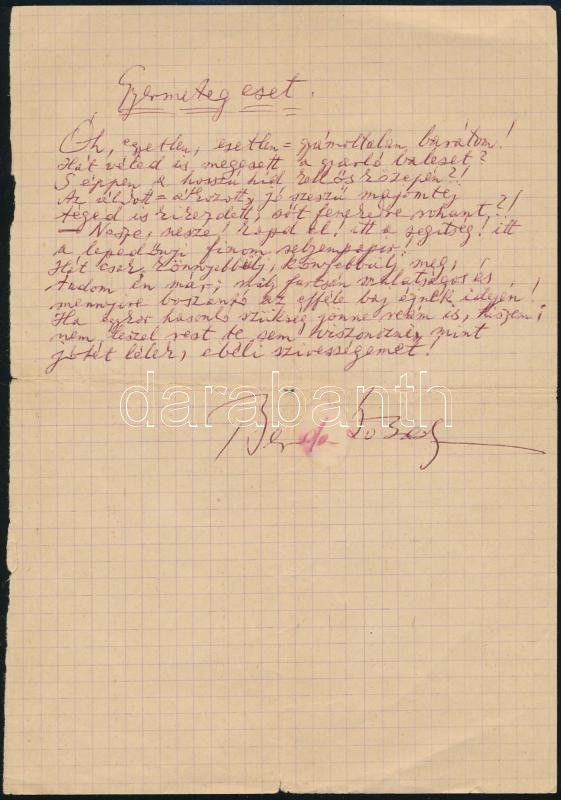 Gyermeteg eset.
Óh, egyetlen, esetlen = gyámoltalan, barátom!
Hát véled is megesett a gyarló baleset?
S éppen a hosszú híd kellős közepén?!
Az áldott = átkozott, jó ízű majomtej
téged is kikezdett, sőt fenekibe rohant?!
— Nesze, nesze! kapd el! itt a segítség! itt
a lepedőnyi finom selyempapír!
Hát csak könnyebbülj, könnyebbülj meg!
Tudom én már, mily furtsán mulatságos és
mennyire boszantó az efféle baj ennek idején!
Ha egykor hasonló szükség jönne reám is, hiszem:
nem leszel rest te sem viszonozni, mint
jótét lélek, ebéli szívességemet!
darabanth
Berda József